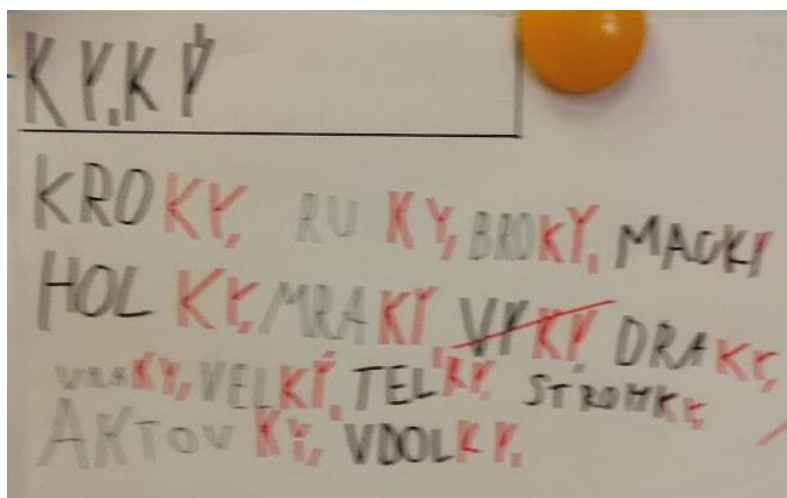 KY, KÝ
KROKY, RUKY, BROKY, MACKY
HOLKY, MRAKY, VYKY, DRAKY,
VRAKY, VELKÝ, TELKY, STROMKY,
AKTOVKY, VDOLKY,